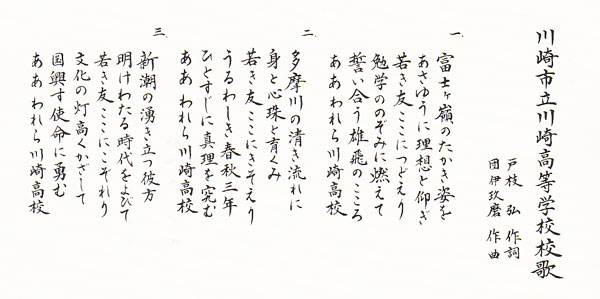 川崎市立川崎高等学校校歌
戸枝 弘 作詞
団伊玖磨 作曲
一、
富士ヶ嶺のたかき姿を
あさゆうに理想と仰ぎ
若き友ここにつどえり
勉学ののぞみに燃えて
誓い合う雄飛のこころ
ああわれら川崎高校
二、
多摩川の清き流れに
身と心珠と育くみ
若き友ここにきそえり
うるわしき春秋三年
ひとすじに真理を究む
ああわれら川崎高校
三、
新潮の湧き立つ彼方
明けわたる時代をよびて
若き友ここにこぞれり
文化の灯高くかざして
国興す使命に勇む
ああわれら川崎高校